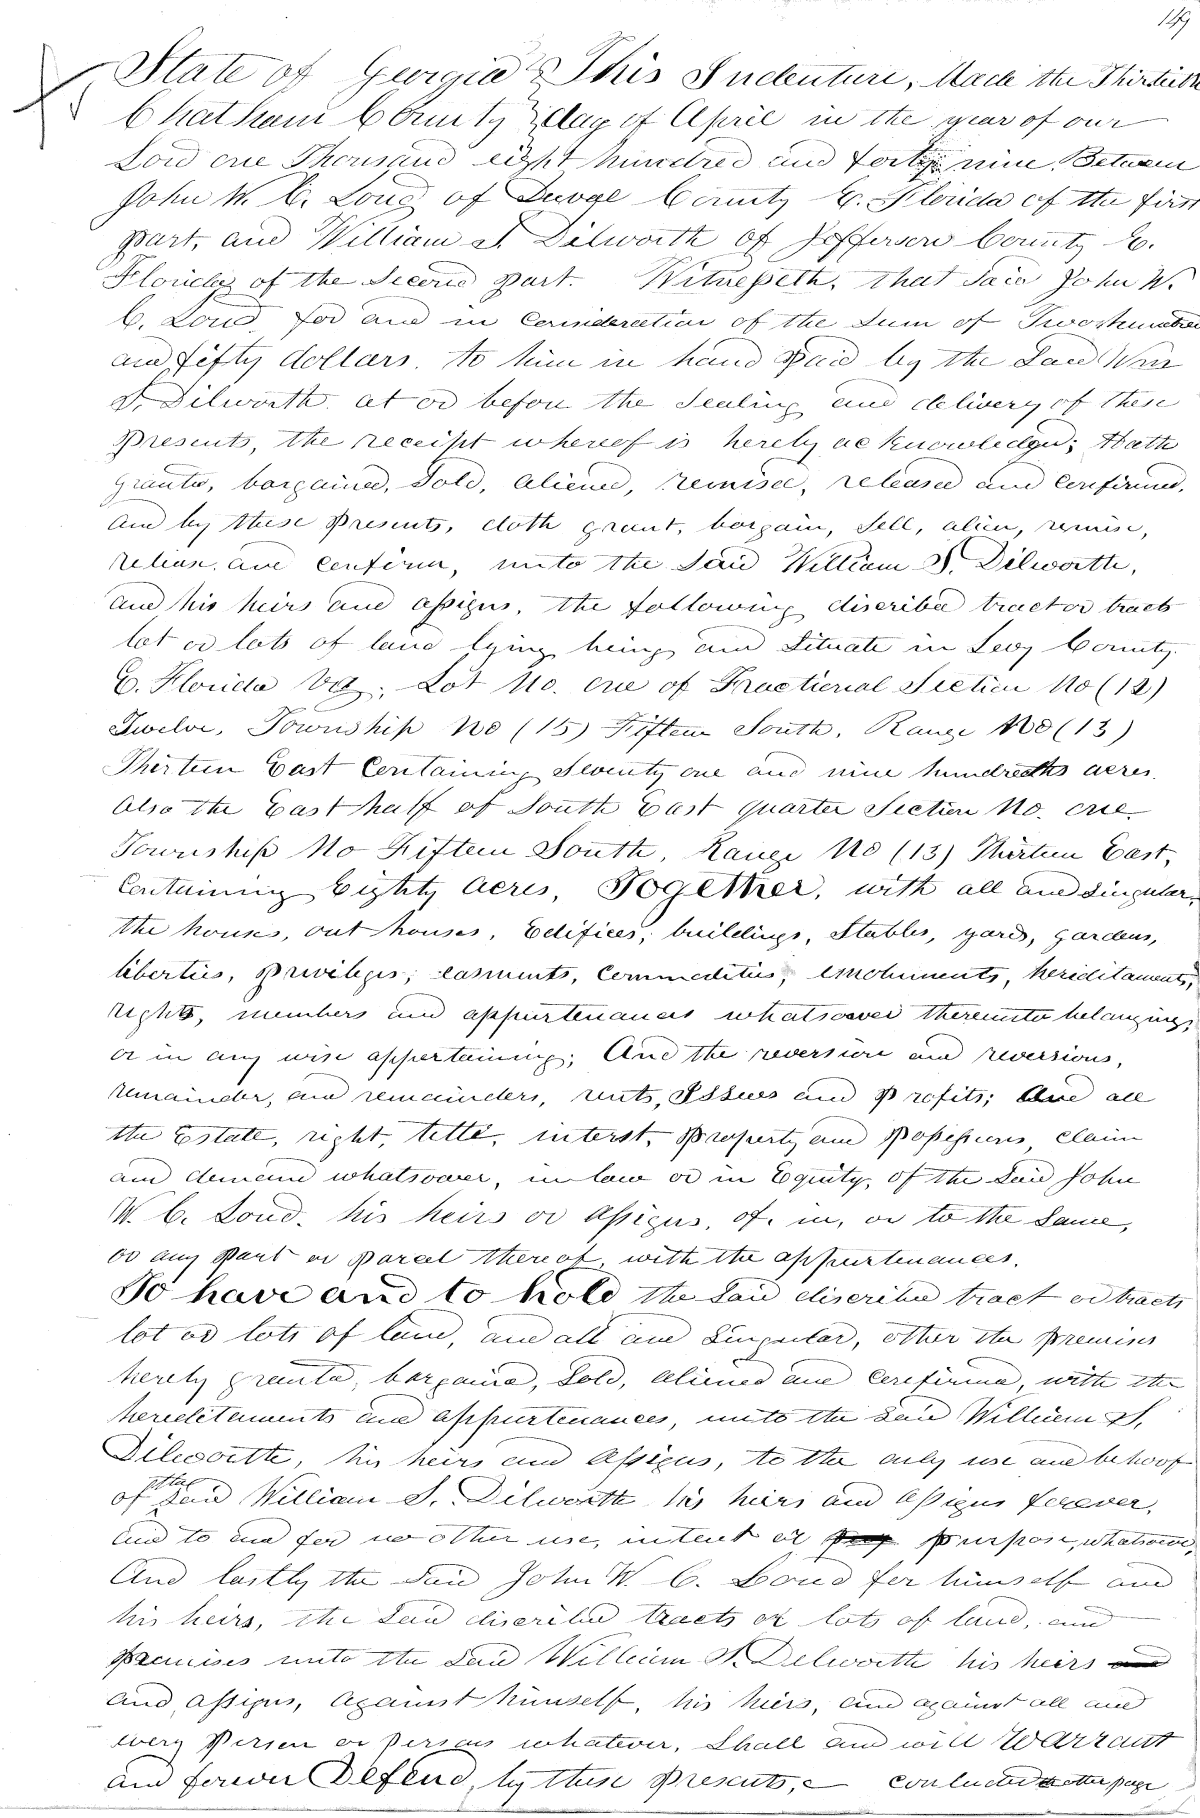 149
State of Georgia } This Indenture, Made the Thirtieth
Chatham County } day of April in the year of our
Lord one Thousand eight hundred and forty nine. Between
John W. C. Loud of Duval County E. Florida of the first
part, and William S. Dilworth of Jefferson County E.
Florida of the Second part. Witnesseth, that Said John W.
C. Loud, for and in Consideration of the Sum of Two hundred
and fifty dollars. to him in hand paid by the Said Wm
S. Dilworth. at or before the Sealing and delivery of these
presents, the receipt whereof is herely acknowledged; Hath
granted, bargained, Sold, aliened, remised, released and Confirmed,
and by these presents, doth grant, bargain, Sell, alien, remise,
release and Confirm, unto the Said William S. Dilworth,
and his heirs and assigns, the following discribed tract or tracts
lot or lots of land lying being and Situate in Levy County.
E. Florida Viz; Lot No. one of Fractional Section No (12)
Twelve, Township No (15) Fifteen South, Range No (13)
Thirteen East Containing Seventy one and nine hundredths acres.
Also the East half of South East quarter Section No. one.
Township No Fifteen South, Range No (13) Thirteen East,
Containing Eighty Acres, Together, with all and Singular,
the houses, out houses, Edifices, buildings, Stables, yards, gardens,
liberties, privileges, easments, Commodities, emoluments, hereditaments,
rights, members and appurtenances whatsoever thereunto belonging,
or in any wise appertaining; And the reversion and reversions,
remainder, and remainders, rents, Issues and Profits; And all
the Estate, right, title, interst, property and possessions, claim
and demand whatsoever, in law or in Equity, of the Said John
W. C. Loud. his heirs or assigns, of, in, or to the Same,
or any part or parcel thereof, with the appurtenances.
To have and to hold the Said discribed tract or tracts
lot or lots of land, and all and Singular, other the premises
herely granted, bargained, Sold, aliened and Confirmed, with the
hereditaments and appurtenances, unto the Said William S.
Dilworth, his heirs and Assigns, to the only use and behoof
of the Said William S. Dilworth his heirs and Assigns forever.
and to and for no other use, intent or purpose, whatsoever,
And lastly the Said John W. C. Loud for himself and
his heirs, the Said discribed tracts or lots of land, and
premises unto the Said William S. Delworth his heirs
and assigns, against himself, his heirs, and against all and
every Person or persons whatever, Shall and will Warrant
and forever Defend, by these presents,